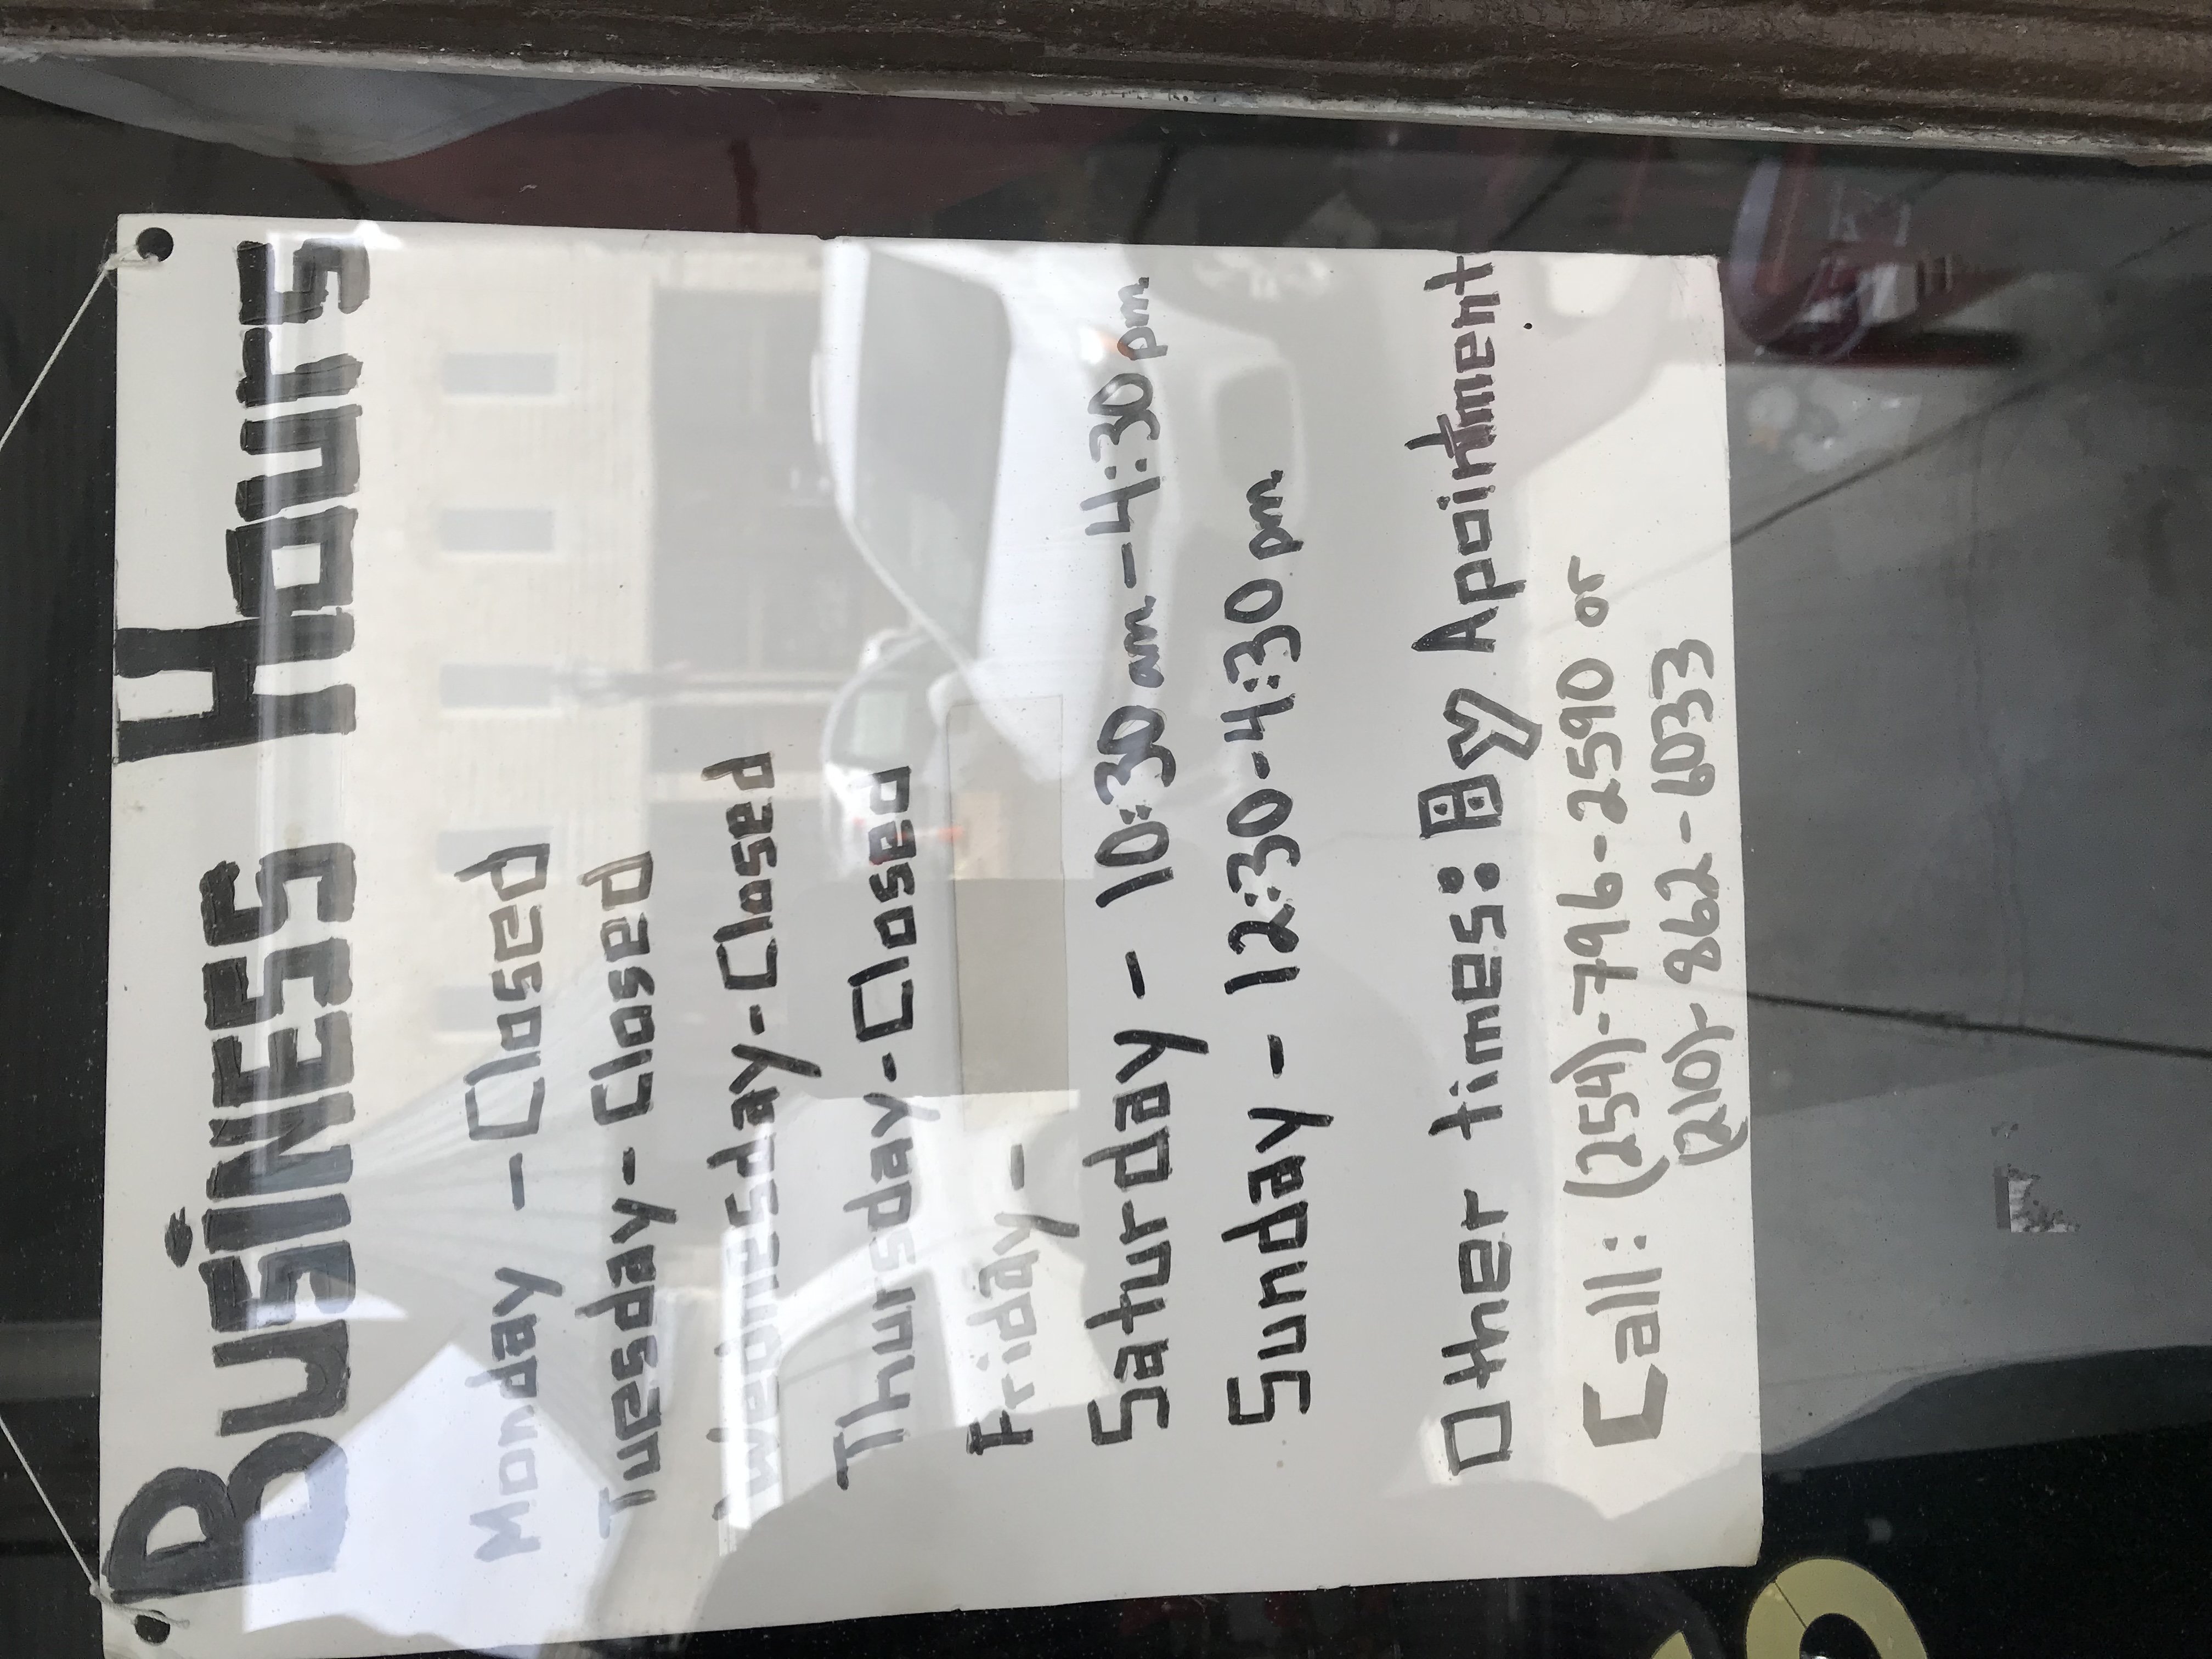 Business Hours
Monday - Closed
Tuesday - Closed
Wednesday - Closed
Thursday - Closed
Friday -
Saturday - 10:30 am - 4:30 pm
Sunday - 12:30 - 4:30 pm
Other times: By Apointment
Call: (254)-796-2590 or
(210)-862-6033